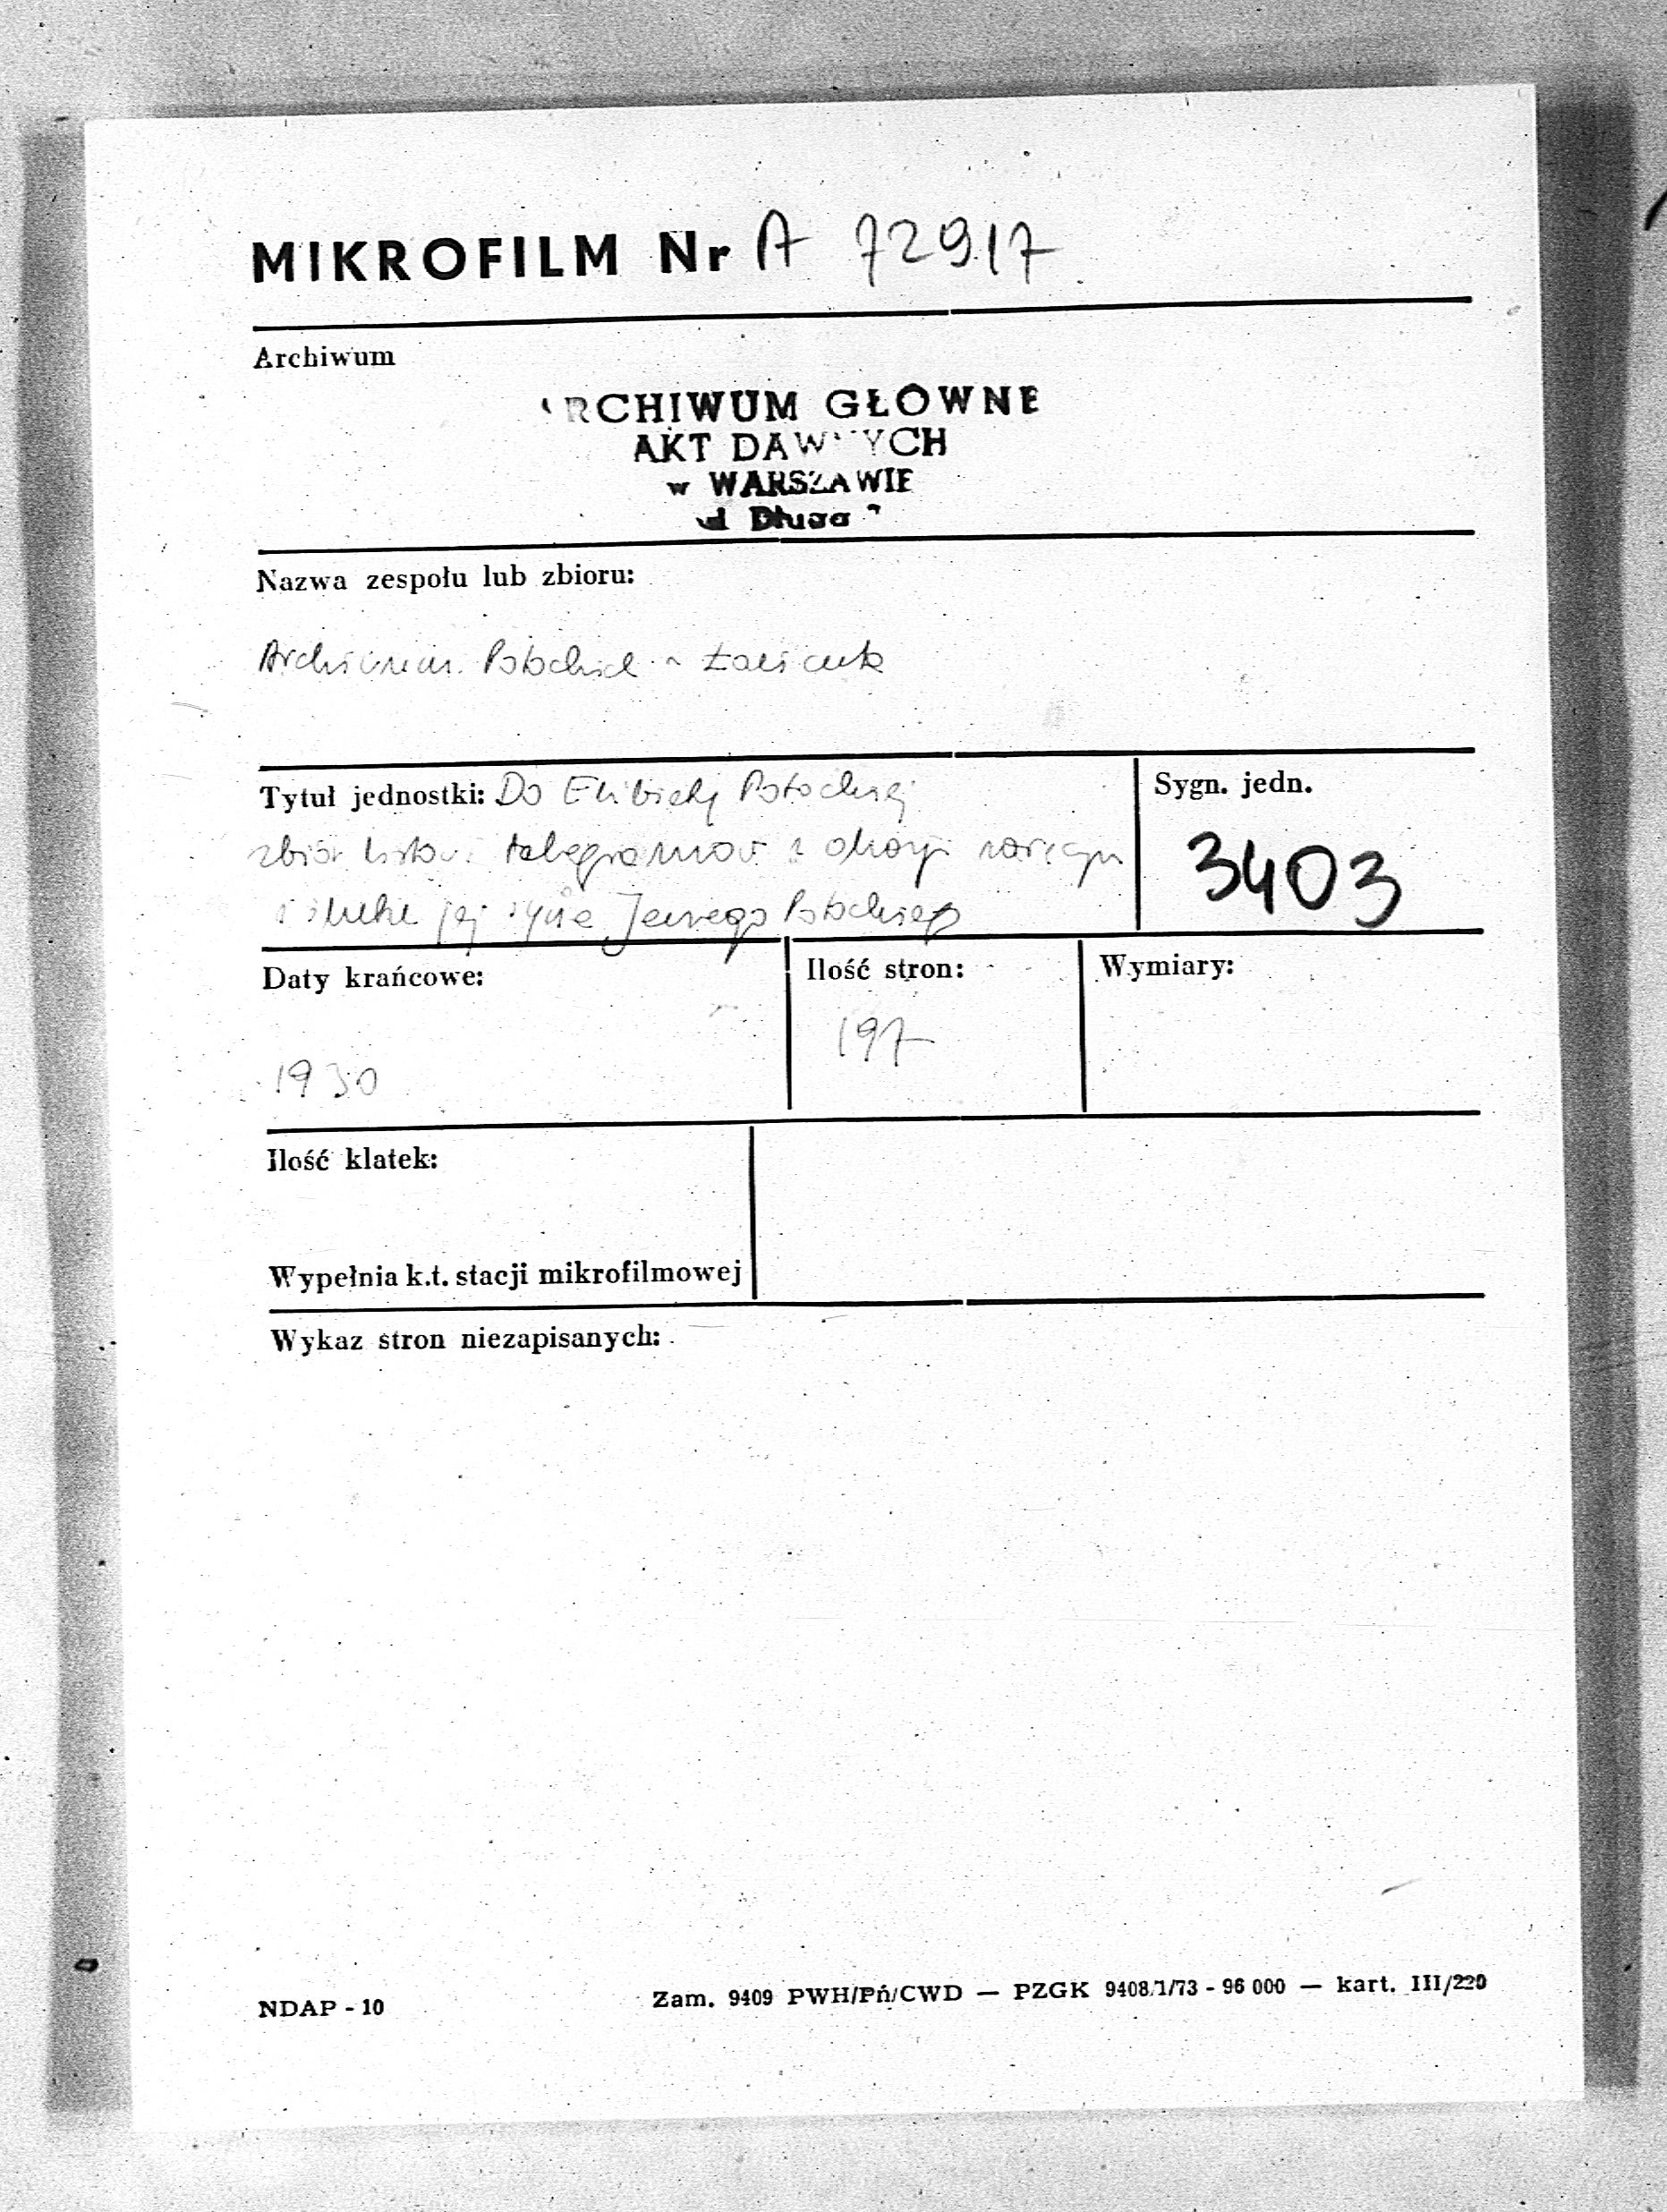 MIKROFILM Nr A 72917
Archiwum
ARCHIWUM GŁÓWNE
AKT DAWNYCH
w WARSZAWIE
ul Długa 7
Nazwa zespołu lub zbioru:
Archiwum Potockich z Łańcuta
Tytuł jednostki: Do Elżbiety Potockiej
Sygn. jedn.
zbiór listów i telegramów z okazji zaręczyn
3403
i ślubu jej syna Jerzego Potockiego
Daty krańcowe:
Ilość stron:
Wymiary:
197
1930
Ilość klatek:
Wypełnia k.t. stacji mikrofilmowej
Wykaz stron niezapisanych:
NDAP - 10
Zam. 9409 PWH/Pń/CWD — PZGK 9408/1/73 - 96 000 — kart. III/220